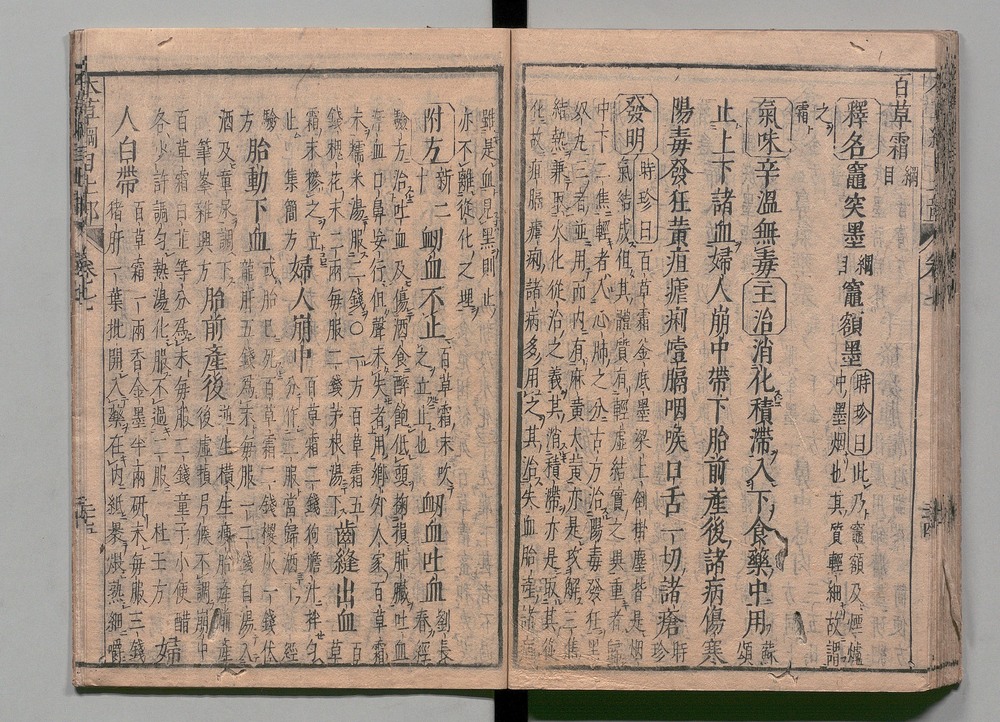 百草霜 綱目
釋名 竈突墨 綱目 竈額墨 時珍曰此乃竈額及烟爐中墨烟也其質輕細故謂
之霜
氣味 辛溫無毒 主治 消化積滯入下食藥中用 蘇頌
止上下諸血婦人崩中帶下胎前產後諸病傷寒
陽毒發狂黃疸瘧痢噎膈咽喉口舌一切諸瘡 時珍
發明 時珍曰百草霜釜底墨梁上倒掛塵皆是烟氣結成但其體質有輕虛結實之異重者歸
中下二焦輕者入心肺之分古方治陽毒發狂黑奴丸三者並用而內有麻黃大黃亦是攻解三焦
結熱兼取火化從治之義其消積滯亦是取其從化故疸膈瘧痢諸病多用之其治失血胎產諸病
雖是血見黑則止亦不離從化之理
附方 新二十 衂血不止 百草霜末吹之立止也 衂血吐血 劉長春經
驗方治吐血及傷酒食醉飽低頭掬損肺臟吐血衂血口鼻妄行但聲未失者用鄉外人家百草霜
末糯米湯服二錢○一方百草霜五錢槐花末二兩每服二錢茅根湯下 齒縫出血 百草
霜末摻之立止集簡方 婦人崩中 百草霜二錢狗膽汁拌勻分作二服當歸酒下 經
驗方 胎動下血 或胎已死百草霜二錢椶灰一錢伏龍肝五錢爲末每服一二錢白湯入
酒及童尿調下筆峯雜興方 胎前產後 逆生橫生瘦胎產前產後虛損月候不調崩中
百草霜白芷等分爲末每服二錢童子小便醋各少許調勻熱湯化服不過二服 杜壬方 婦
人白帶 百草霜一兩香金墨半兩研末每服三錢猪肝一葉批開入藥在內紙裹煨熟細嚼